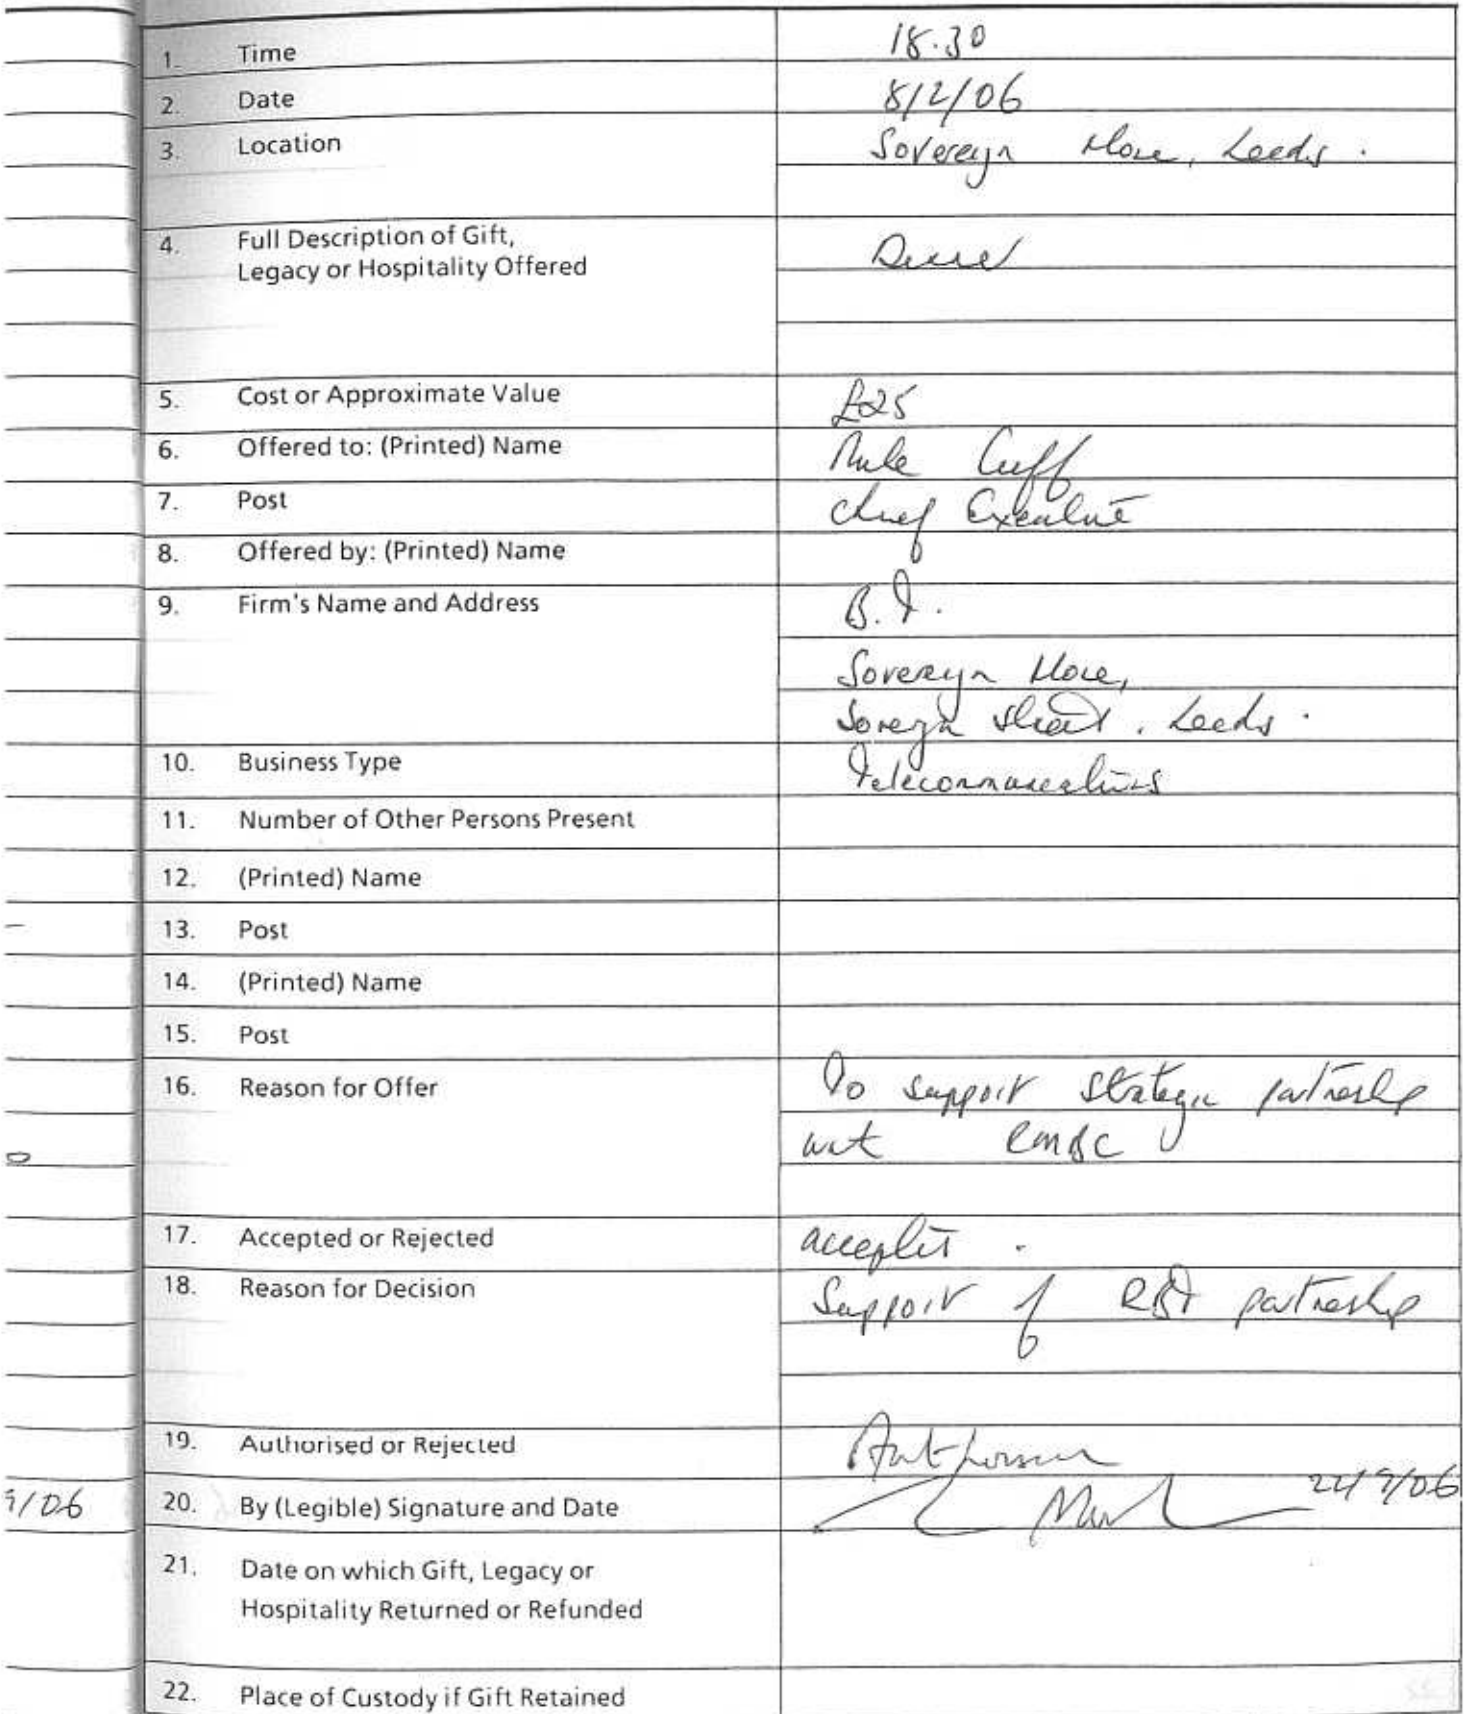 1. Time 18.30
2. Date 8/2/06
3. Location Sovereign House, Leeds.
4. Full Description of Gift,
Legacy or Hospitality Offered Dinner
5. Cost or Approximate Value £25
6. Offered to: (Printed) Name Mike Cuff
7. Post Chief Executive
8. Offered by: (Printed) Name
9. Firm's Name and Address B.T.
Sovereign House,
Sovereign Street, Leeds.
10. Business Type Telecommunications
11. Number of Other Persons Present
12. (Printed) Name
13. Post
14. (Printed) Name
15. Post
16. Reason for Offer To support strategic partnership
with RMBC
17. Accepted or Rejected accepted.
18. Reason for Decision Support of RBT partnership
19. Authorised or Rejected
9/06 20. By (Legible) Signature and Date /06
21. Date on which Gift, Legacy or
Hospitality Returned or Refunded
22. Place of Custody if Gift Retained